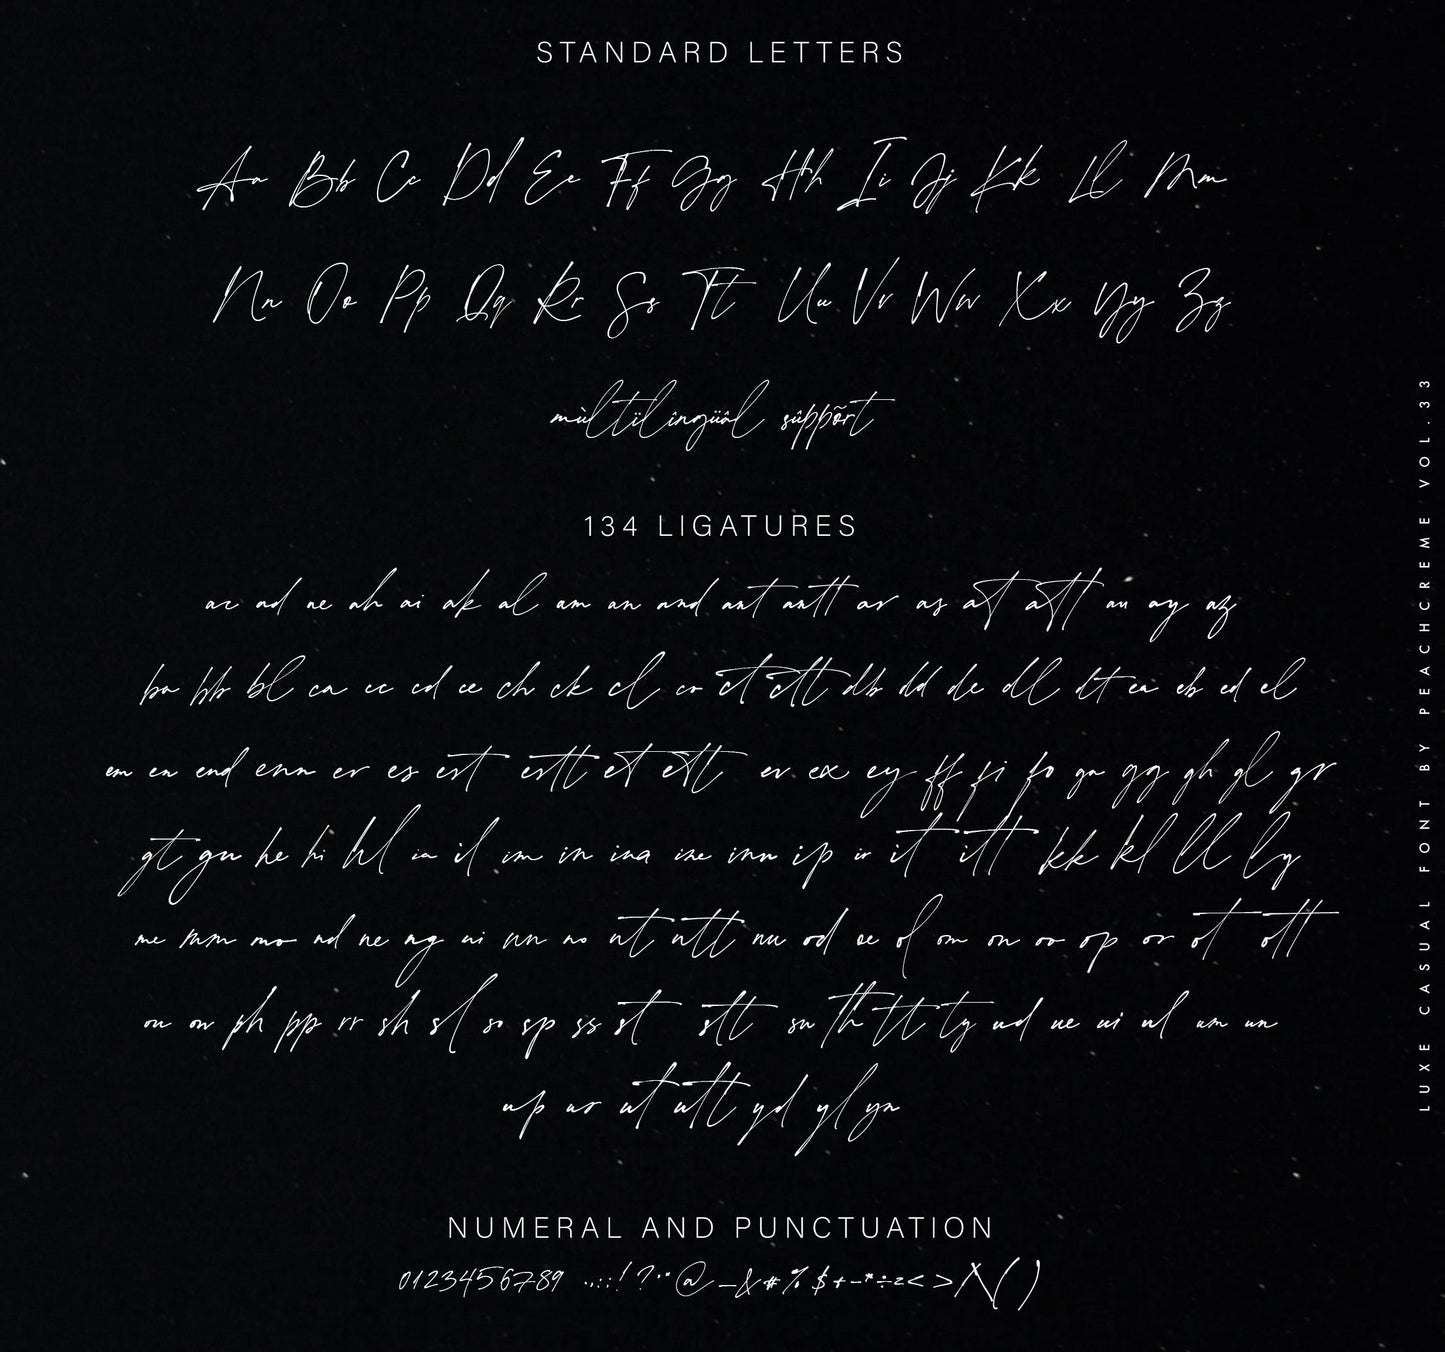 STANDARD LETTERS
Aa Bb Cc Dd Ee Ff Gg Hh Ii Jj Kk Ll Mm
Nn Oo Pp Qq Rr Ss Tt Uu Vv Ww Xx Yy Zz
mùltïlîngüâl sûppõrt
134 LIGATURES
ac ad ae ah ai ak al am an and ant antt ar as at att au ay az
ba bb bl ca cc cd ce ch ck cl co ct ctt db dd de dl dt ea eb ed el
em en end enn er es est estt et ett ev ex ey ff fi fo ga gg gh gl gr
gt gu he hi hl ia il im in ina ine inn ip ir it itt kk kl ll ly
me mm mo nd ne ng ni nn no nt ntt nu od oe of om on oo op or ot ott
ou ow ph pp rr sh sl so sp ss st stt su th tt ty ud ue ui ul um un
up us ut utt yd yl yn
NUMERAL AND PUNCTUATION
0123456789 .,:;!?"@_&#%$+-*÷=<>/\()
LUXE CASUAL FONT BY PEACHCREME VOL.33